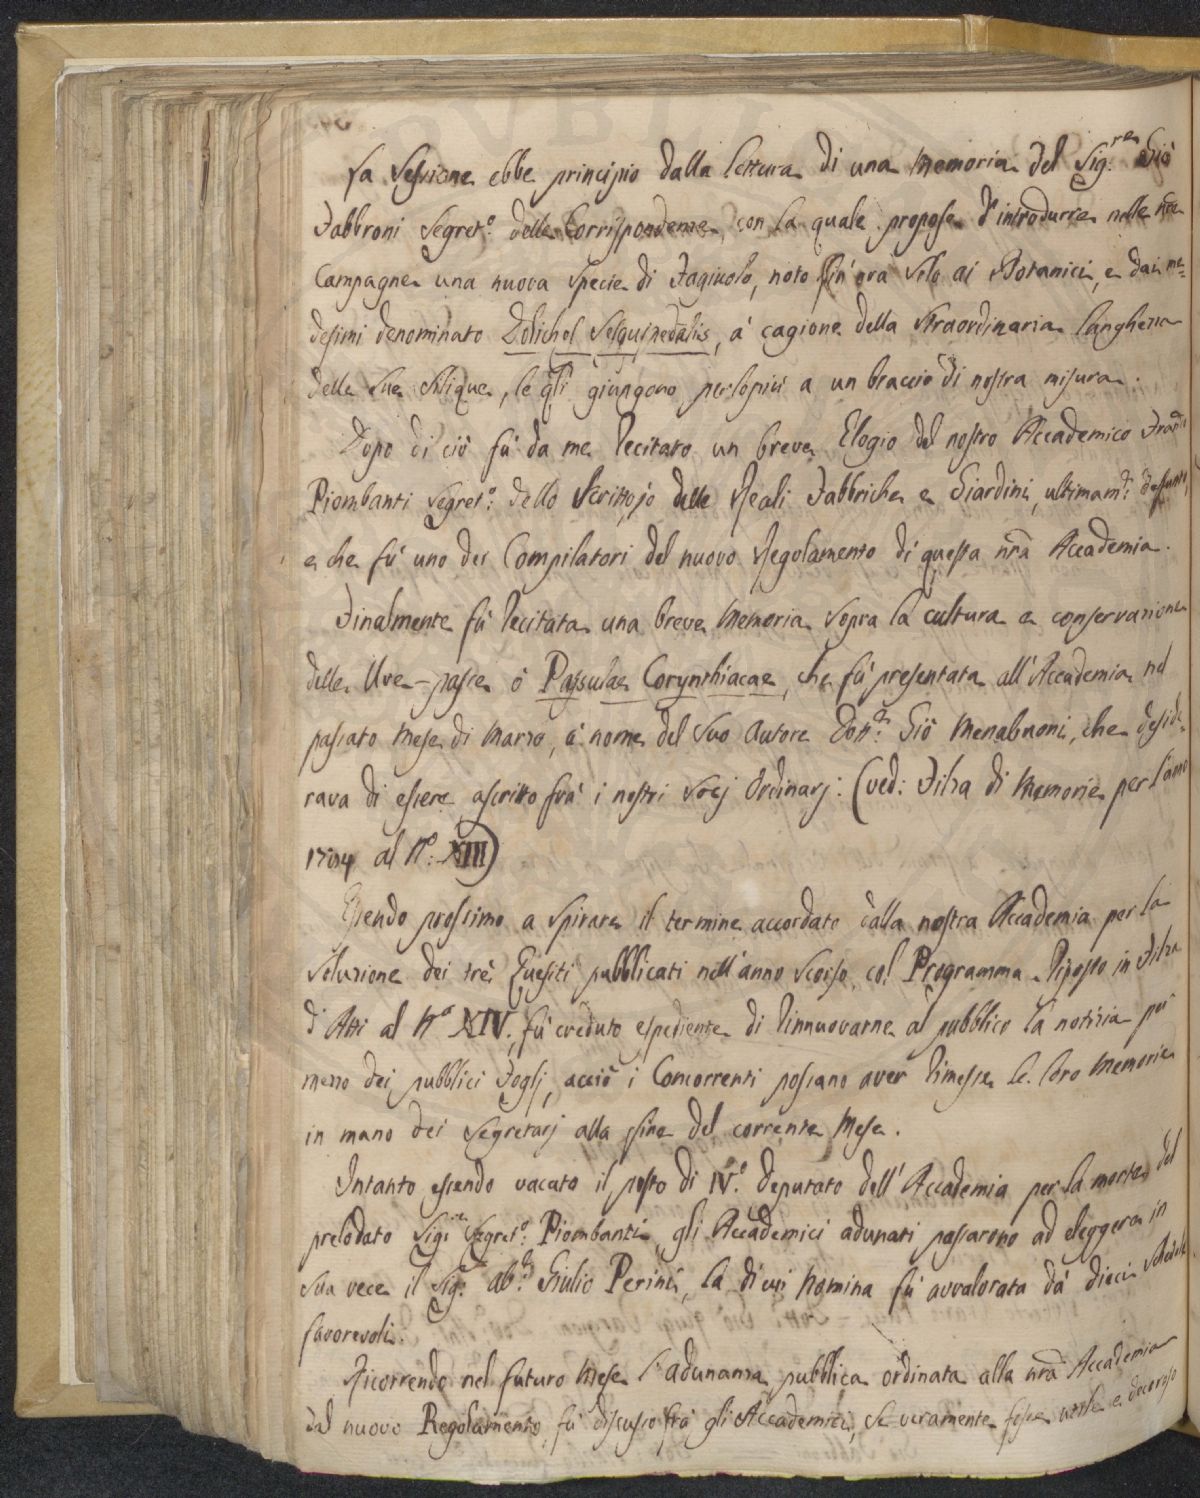 La Sessione ebbe principio dalla lettura di una Memoria del Sig.re Gio
Fabbroni Segret.o delle Corrispondenze, con la quale propose d'introdurre nelle nře
Campagne una nuova specie di Fagiuolo, noto fin'ora solo ai Botanici, e dai me=
desimi denominato Dolichos Sesquipedalis, a' cagione della straordinaria langhezza
delle sue Silique, le qli giungono perlopiù a un braccio di nostra misura.
Dopo di ciò fù da me recitato un breve Elogio del nostro Accademico
Piombanti Segret.o dello Scrittojo delle Reali Fabbriche e Giardini, ultimam.te defunto,
e che fù uno dei Compilatori del nuovo Regolamento di questa nr̃a Accademia.
Finalmente fù recitata una breve Memoria sopra la cultura e conservazione
delle Uve-passe ò Passulae Corynthiacae, che fù presentata all'Accademia nel
passato Mese di Marzo, à nome del suo Autore Dott.r Giò Menabuoni, che deside=
rava di essere ascritto frà i nostri Socj Ordinarj: (ved: Filza di Memorie per l'anno
1784 al N.o: XIII)
Essendo prossimo a spirare il termine accordato dalla nostra Accademia per la
soluzione dei trè Quesiti pubblicati nell'anno scorso, col Programma riposto in Filza
d'Atti al N.o XIV, fù creduto espediente di rinnuovarne al pubblico la notizia per
mezzo dei pubblici Foglj, acciò i Concorrenti possano aver rimesse le loro Memorie
in mano dei Segretarj alla fine del corrente Mese.
Intanto essendo vacato il posto di IV.o Deputato dell'Accademia per la morte del
prelodato Sig.re Segret.o Piombanti, gli Accademici adunati passarono ad eleggere in
sua vece il Sig. ab.e Giulio Perini, la di cui Nomina fù avvalorata dà dieci
favorevoli.
Ricorrendo nel futuro Mese l'adunanza pubblica ordinata alla nr̃a Accademia
dal nuovo Regolamento, fù discusso frà gli Accademici, se veramente fosse utile e decoroso